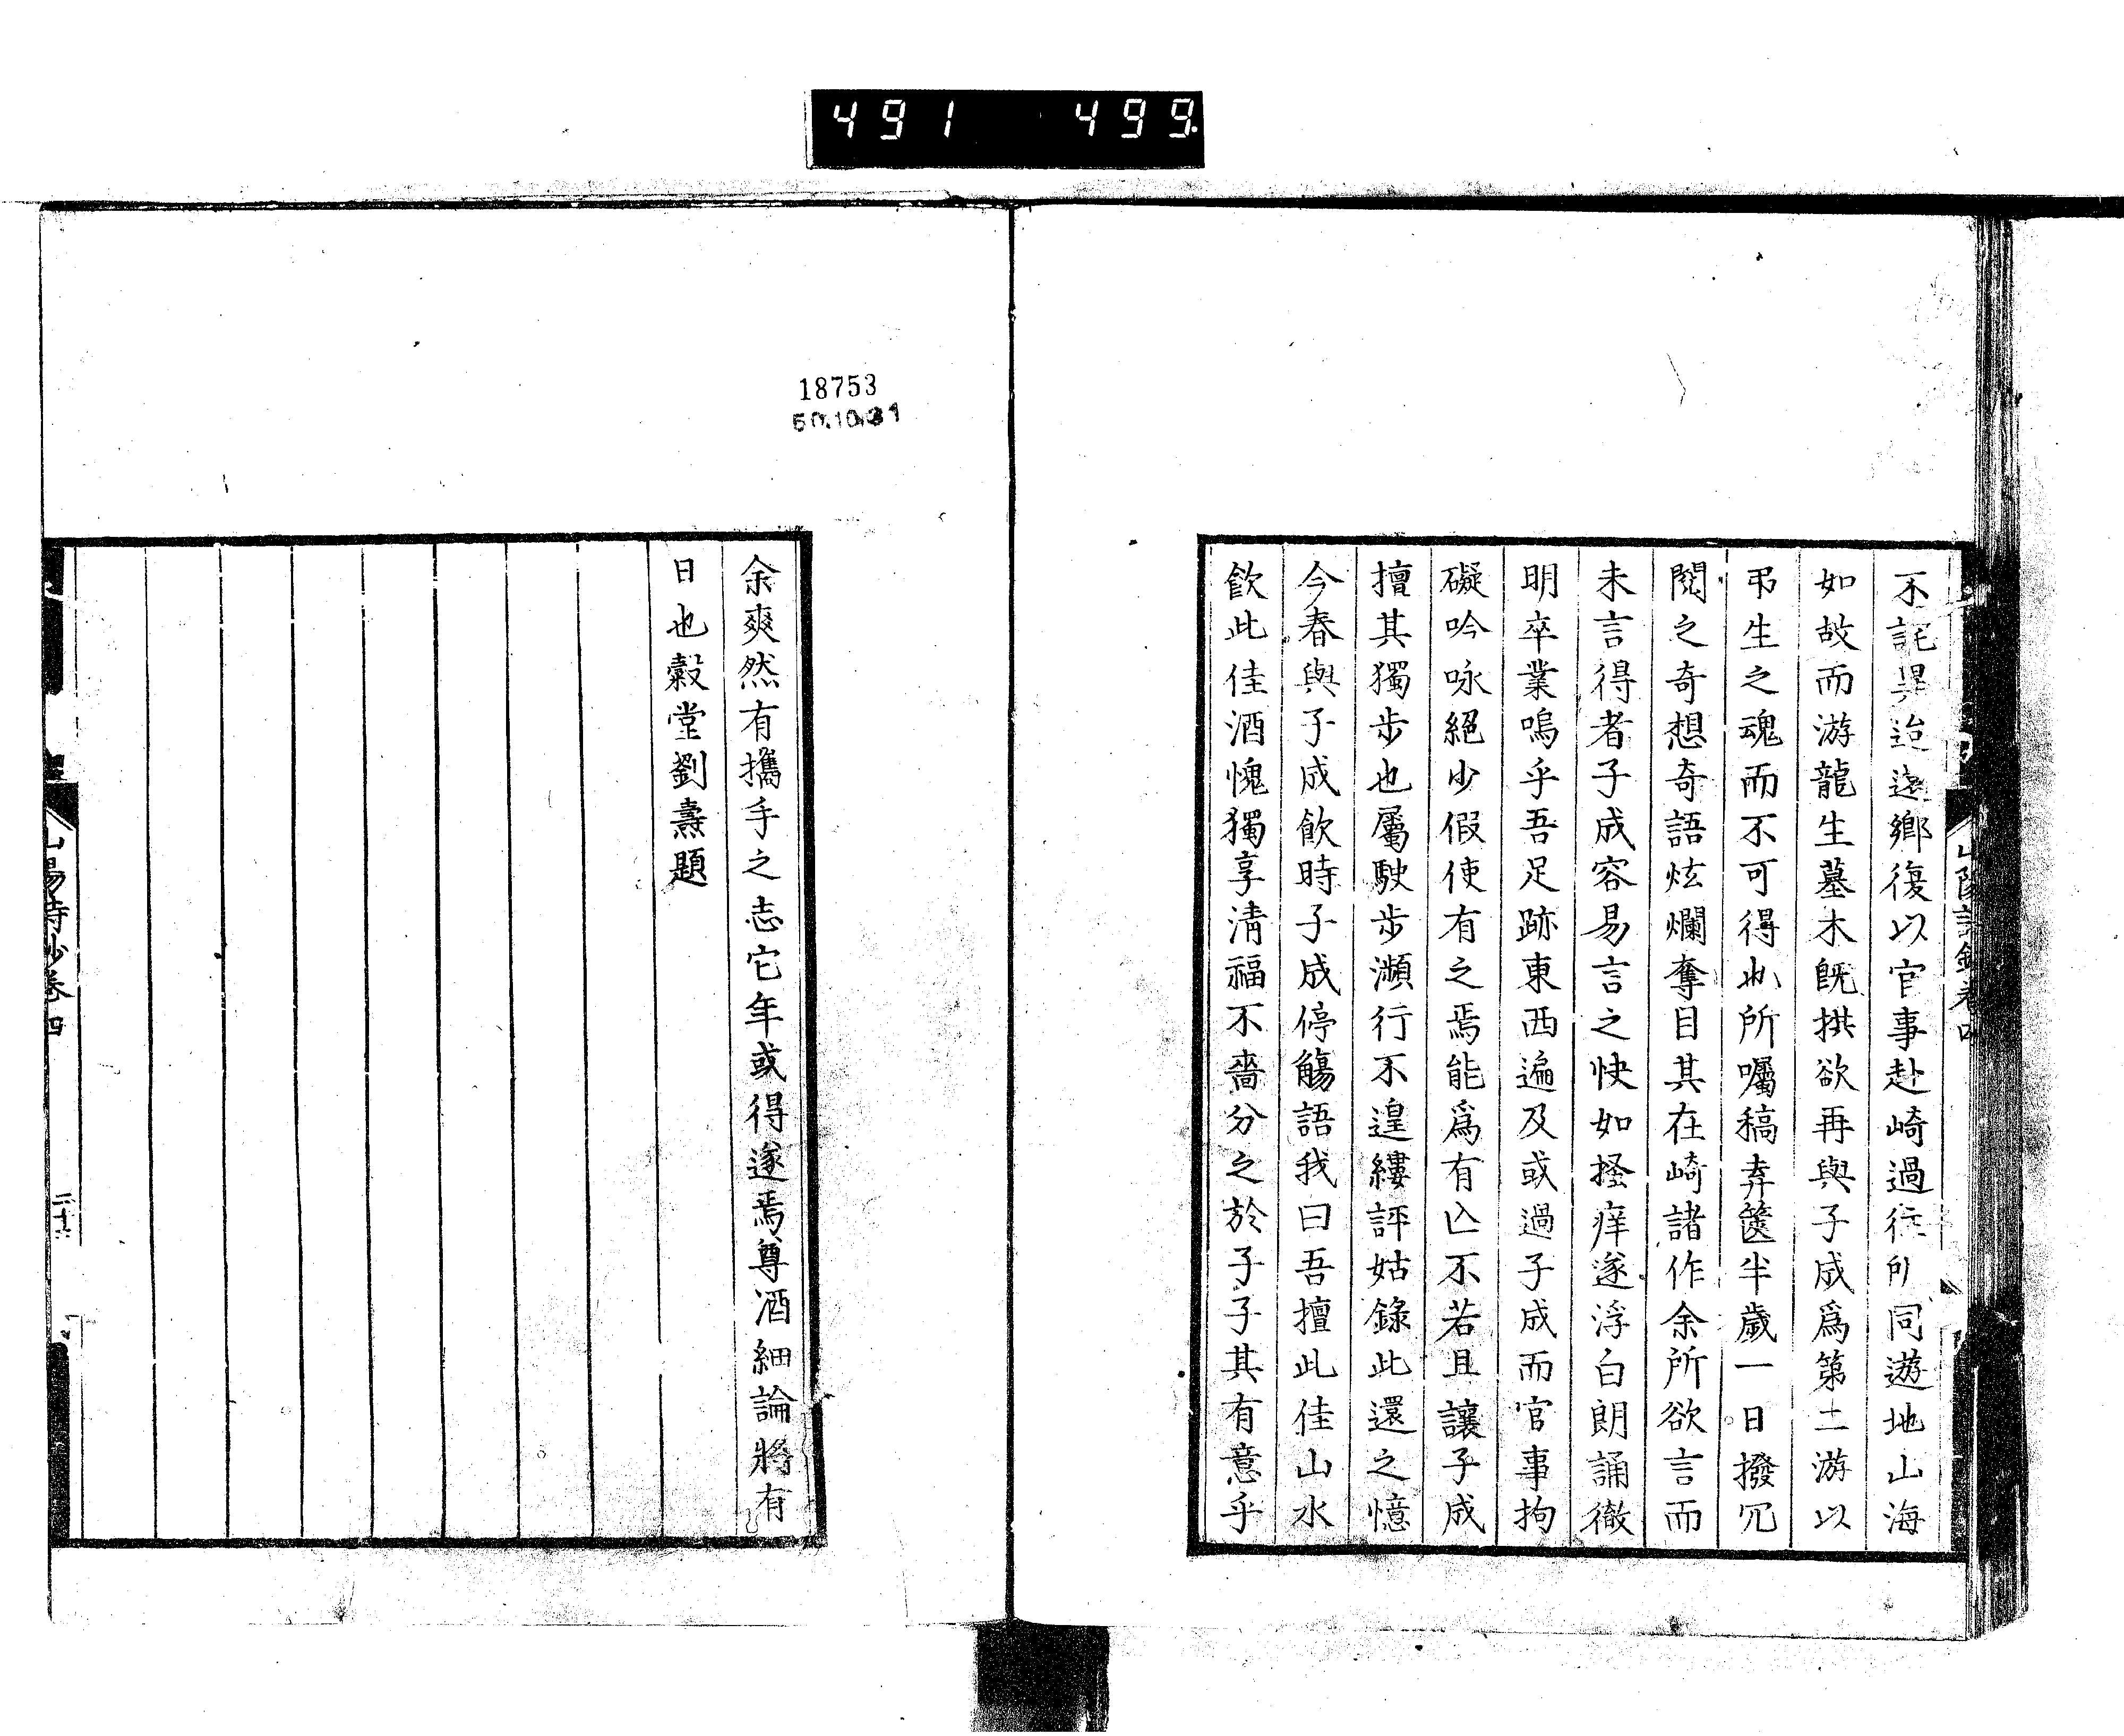 491 499
不詫異迨還鄉復以官事赴崎過徃所同遊地山海
如故而游龍生墓木既拱欲再與子成爲第二游以
弔生之魂而不可得也所囑稿弆篋半歲一日撥冗
閱之奇想奇語炫爛奪目其在崎諸作余所欲言而
未言得者子成容易言之快如搔痒遂浮白朗誦徹
明卒業嗚乎吾足跡東西遍及或過子成而官事拘
礙吟咏絕少假使有之焉能爲有亾不若且讓子成
擅其獨步也屬駛步瀕行不遑縷評姑錄此還之憶
今春與子成飲時子成停觴語我曰吾擅此佳山水
飲此佳酒愧獨享淸福不嗇分之於子子其有意乎
18753
50.10.31
余爽然有攜手之志它年或得遂焉尊酒細論將有
日也穀堂劉燾題
山陽詩鈔卷四